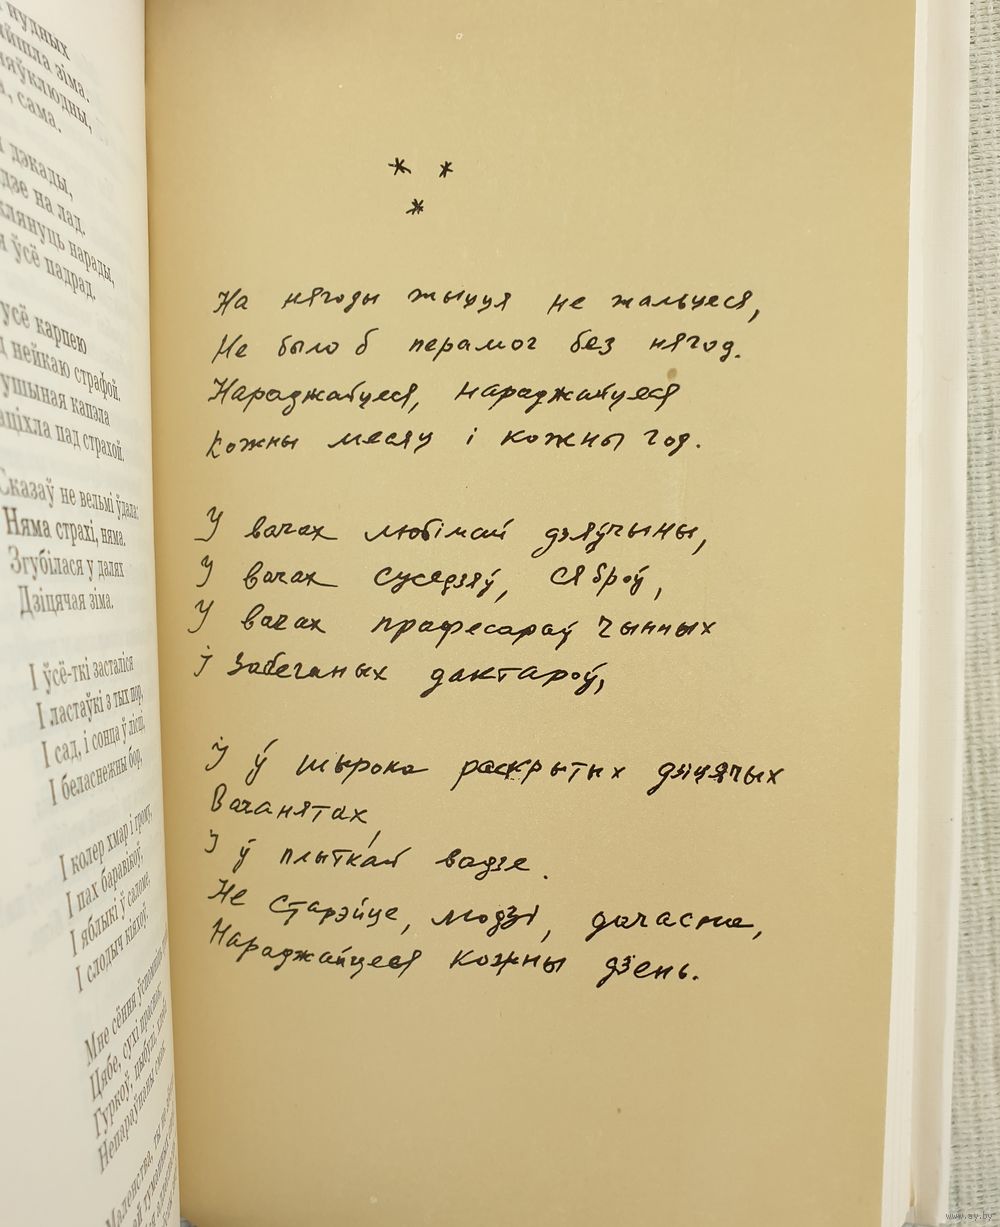 нудных
зіма.
няўклюдны,
сама.
дэкады,
на лад.
нарады,
ўсё падрад.
усё карпею
нейкаю страфой.
капэла
пад страхой.
Сказаў не вельмі ўдала:
Няма страхі, няма.
Згубілася у далях
Дзіцячая зіма.
І ўсё-ткі засталіся
І ластаўкі з тых пор,
І сад, і сонца ў лісці,
І беласнежны бор,
І колер хмар і грому,
І пах баравікоў,
І яблыкі ў саломе,
І слодыч кіяхоў.
Мне сёння ўспомніць
Цябе, сухі праснак,
Гуркоў, цыбулі,
* *
*
На нягоды жыцця не жальцеся,
Не было б перамог без нягод.
Нараджайцеся, нараджайцеся
Кожны месяц і кожны год.
У вачах любімай дзяўчыны,
У вачах суседзяў, сяброў,
У вачах прафесараў чынных
І забеганых дактароў,
І ў шырока раскрытых дзіцячых
Вачанятах,
І ў плыткай вадзе.
Не старэйце, людзі, дачасна,
Нараджайцеся кожны дзень.
www.ay.by